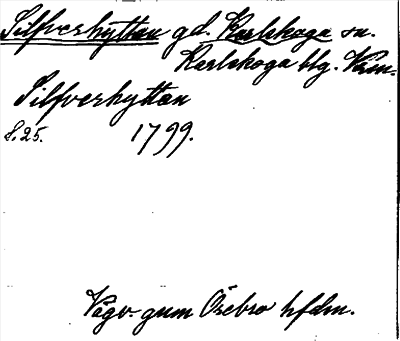 Silfverhyttan gd. Karlskoga sn.
Karlskoga blg. Vrm.
Silfverhyttan
S. 25. 1799.
Vägv. gnm Örebro hfdm.